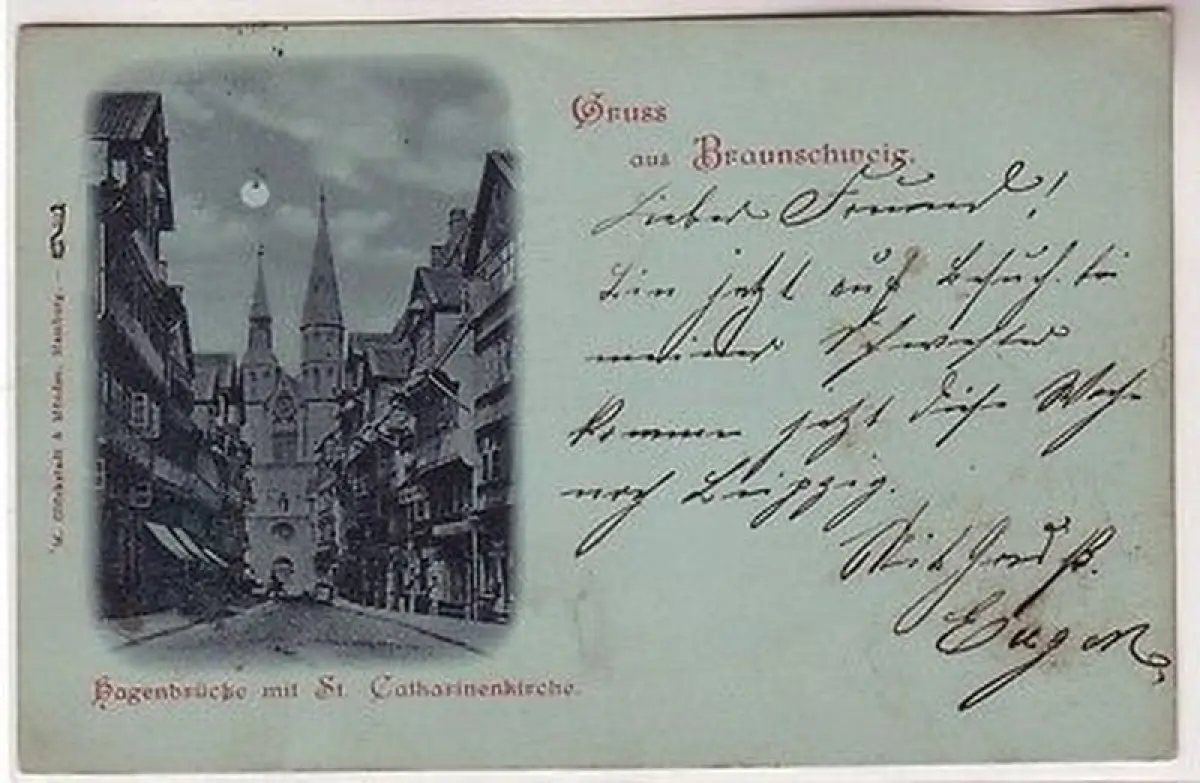 Gruss
aus Braunschweig.
Lieber Freund!
Bin jetzt auf Besuch bei
meiner Schwester
komme jetzt diese Woche
nach Leipzig.
Mit Gruß.
Eugen
Hagenbrücke mit St. Catharinenkirche.
Hamburg.